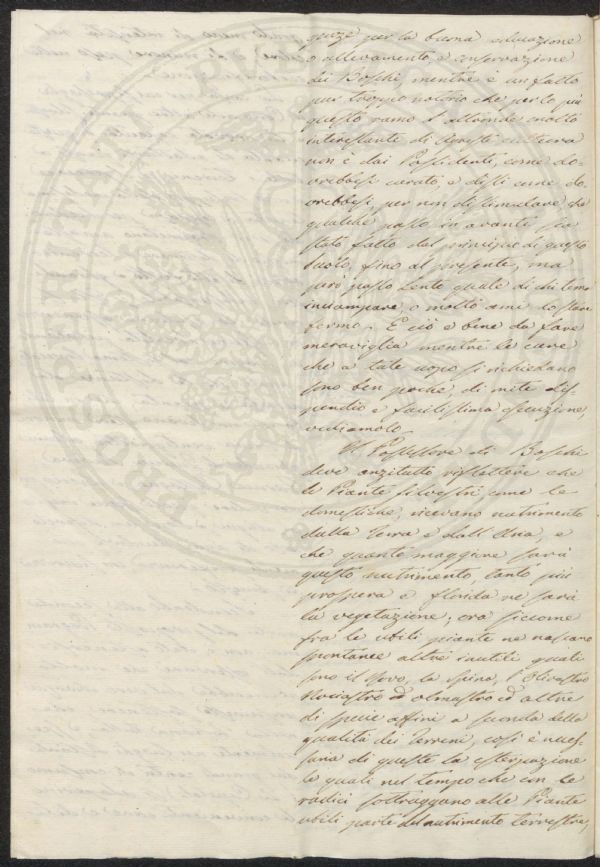 genze per la buona educazione
o allevamento, e conservazione
dei Boschi, mentre è un fatto
pur troppo notorio che per lo più
questo ramo d'azienda molto
interessante di Agresti
non è dai Possidenti, come do-
vrebbesi curato, e dissi come do-
vrebbesi, per non dissimulare che
qualche passo in avanti sia
stato fatto dal principio di questo
Suolo, fino al presente, ma
però passo lento quale di chi teme
inciampare, o molto ami lo star
fermo. E ciò è bene da fare
meraviglia mentre le cure
che a tale uopo si richiedano
sono ben poche, di mite dis-
pendio e facilissima esecuzione,
vediamolo.
Il Possessore di Boschi
deve anzitutto riflettere che
le Piante silvestri come le
domestiche, ricevano nutrimento
dalla Terra e dall'Aria, e
che quanto maggiore sarà
questo nutrimento, tanto più
prospera e florida ne sarà
la vegetazione; ora siccome
fra le utili piante ne nascano
spontanee altre inutili quali
sono il Rovo, la Spina, l'Olivastro
ed olmastro ed altre
di specie affini a seconda della
qualità dei Terreni, così è neces-
saria di queste la esterpazione
le quali nel tempo che con le
radici sottraggano alle Piante
utili parte del nutrimento terrestre,
PROSPERITATI PUBLICAE